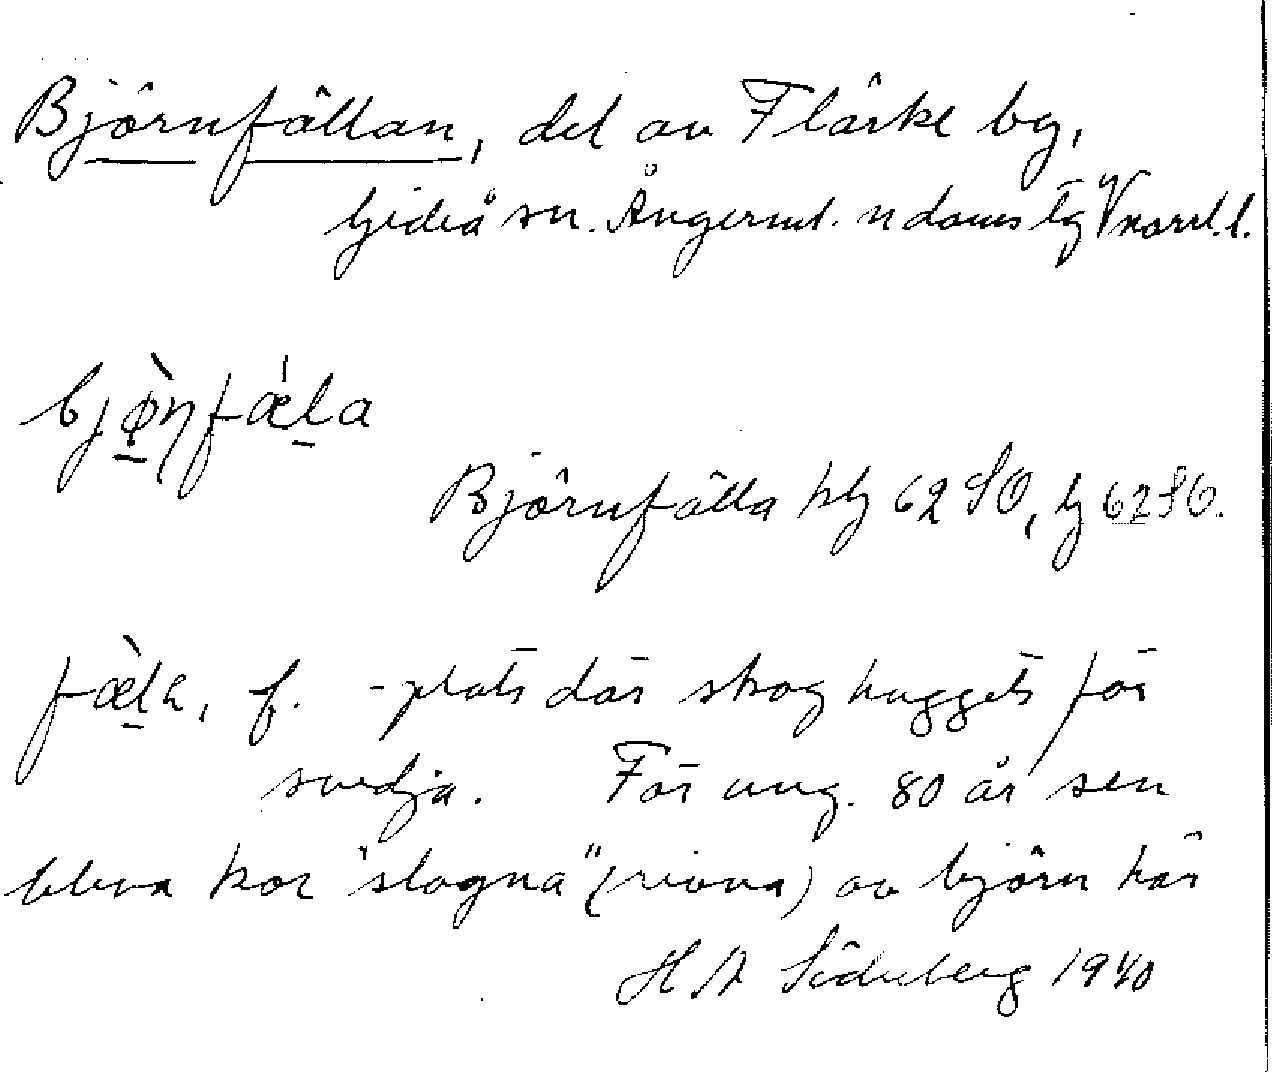 Björnfällan, del av Flärke by,
Gideå sn. Ångerml. n doms tg Vnorrl. l.
bjø̀ṇfǽla
Björnfälla hly 62 SO, ly 62 SO.
fæ̀la, f. - plats där skog huggets för
svedja. För ung. 80 år sen
bleva kor "slagna" (rivna) av björn här
H A Söderberg 1940